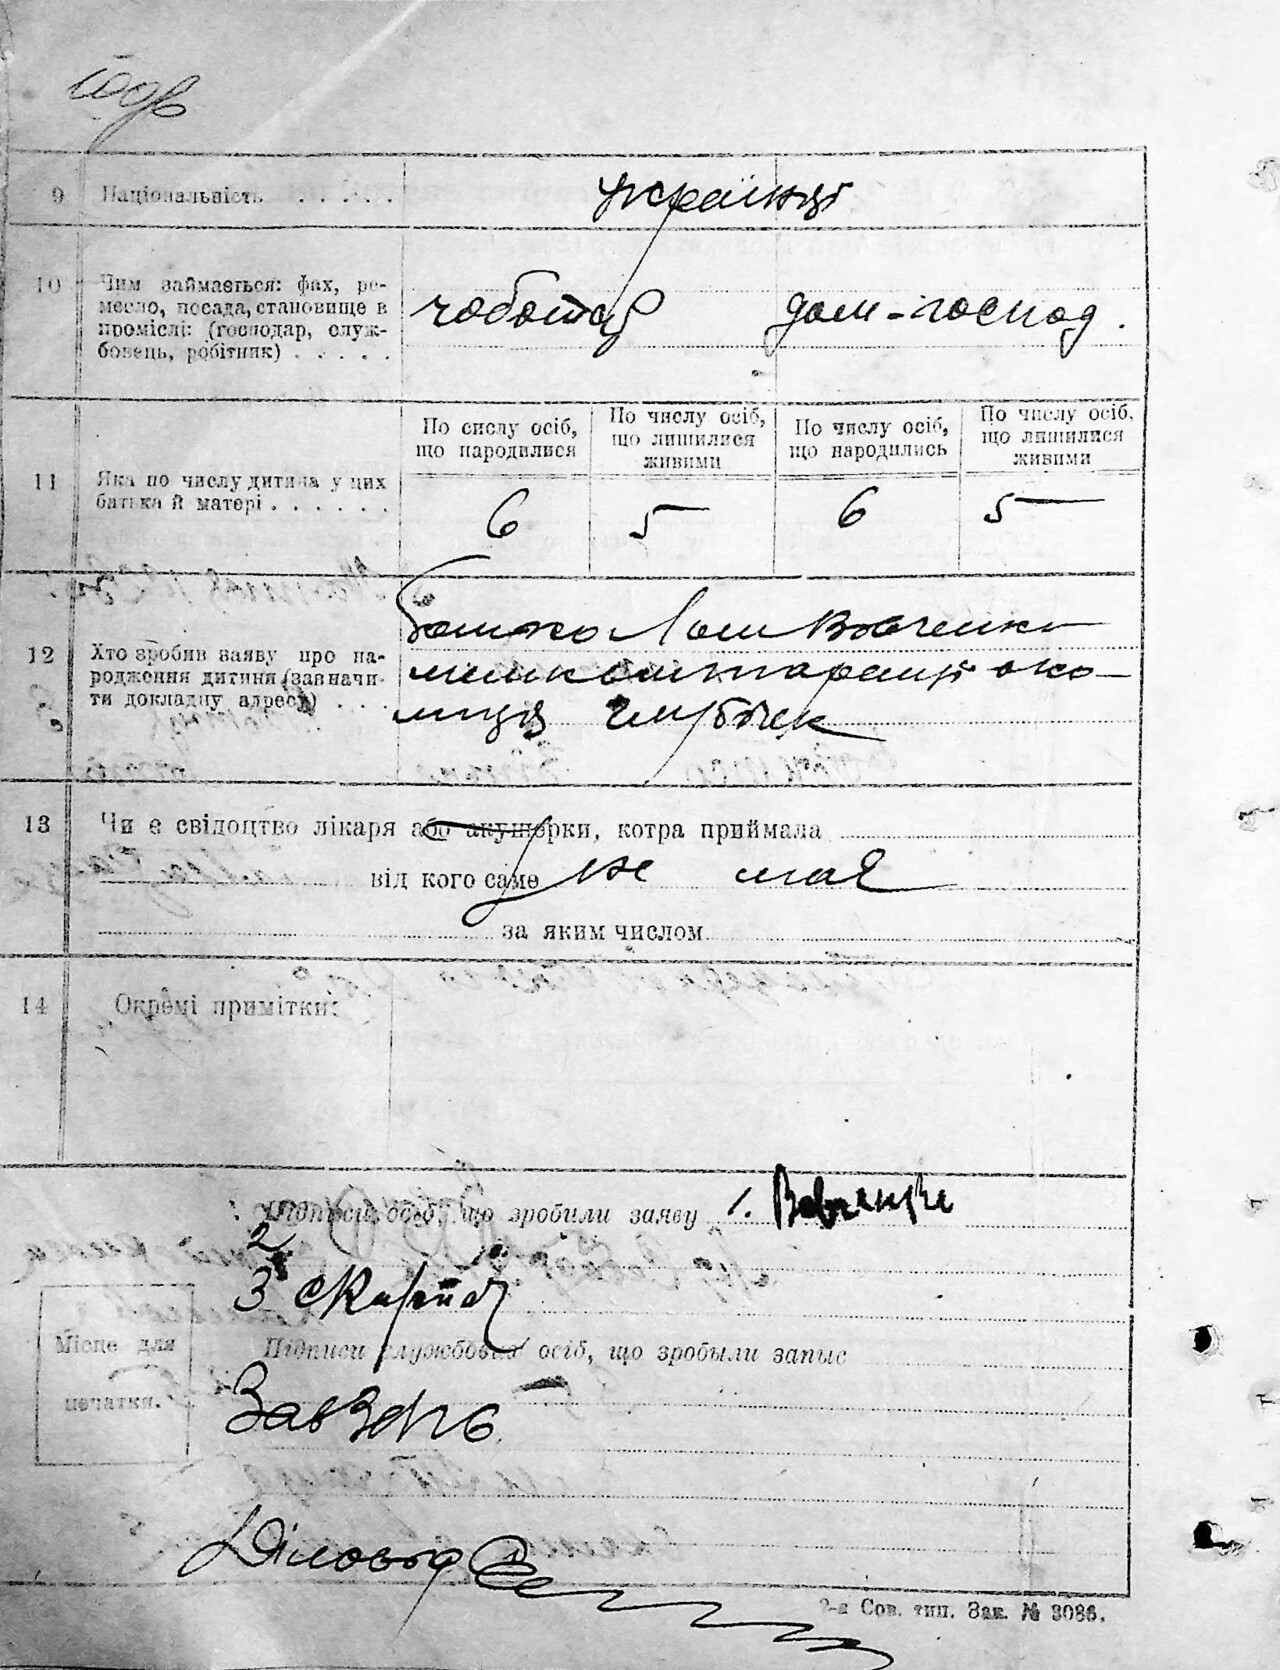 9 Національність . . . . . українці
10 Чим займається: фах, ре-
месло, посада, становище в
проміслі: (господар, служ-
бовець, робітник) . . . . .
чоботар дом-господ.
По числу осіб,
що народилися
По числу осіб,
що лишилися
живими
По числу осіб,
що народились
По числу осіб,
що лишилися
живими
11 Яка по числу дитина у цих
батька й матері . . . . . .
6 5 6 5
12 Хто зробив заяву про на-
родження дитини (зазначи-
ти докладну адресу) . . .
батько Вовченко
13 Чи є свідоцтво лікаря або акушерки, котра приймала
від кого саме не має
за яким числом
14 Окремі примітки:
Підписи осіб, що зробили заяву 1. Вовченко
2.
3
Місце для
печатки.
Підписи службових осіб, що зробыли запыс
ЗавЗАГС
Діловод
2-а Сов. тип. Зак. № 3086.